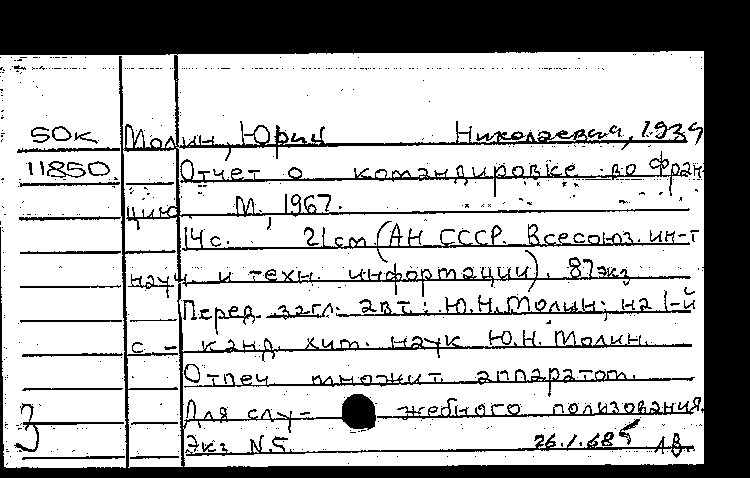 50к Молин, Юрий Николаевич, 1934
11850. Отчет о командировке во Фран-
цию. М., 1967.
14с. 21см (АН СССР. Всесоюз. ин-т
науч. и техн. информации). 87экз
Перед загл. авт.: Ю.Н.Молин; на 1-й
с - канд. хим. наук Ю.Н. Молин.
Отпеч множит. аппаратом.
Для слу- жебного ползования.
3 Экз N.5. 26.1.68